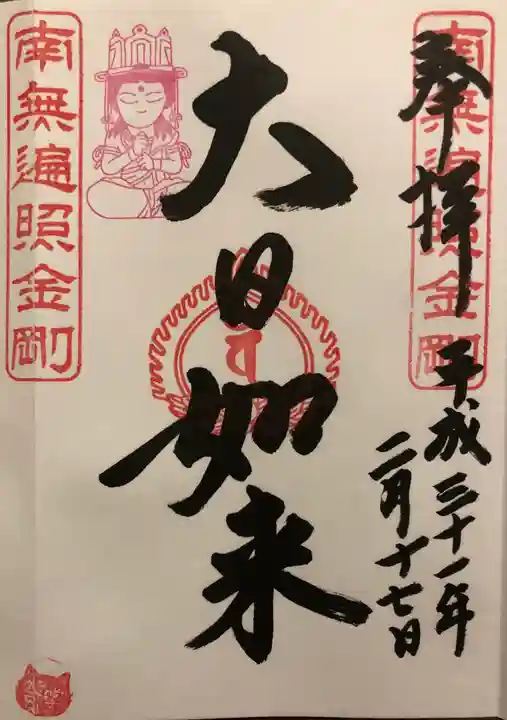 奉拝
平成三十一年
二月十七日
南無遍照金剛
大日如来
南無遍照金剛